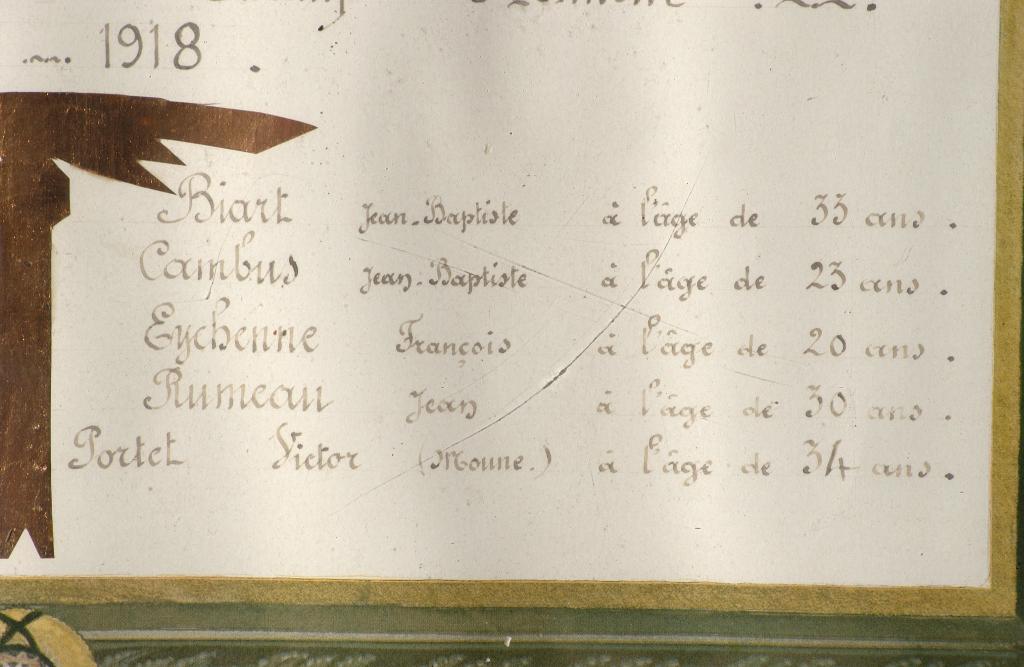 1918 .
Biart Jean-Baptiste à l'âge de 33 ans .
Cambus Jean-Baptiste à l'âge de 23 ans .
Eychenne François à l'âge de 20 ans .
Rumeau Jean à l'âge de 30 ans .
Portet Victor (Moune.) à l'âge de 34 ans .